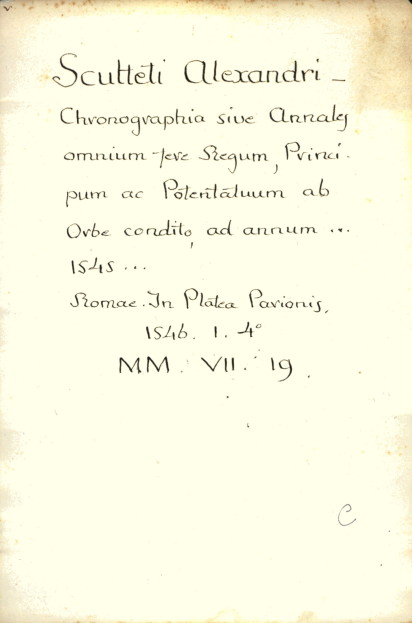 Scutteti Alexandri –
Chronographia sive Annales
omnium fere Regum, Princi-
pum ac Potentatuum ab
Orbe condito, ad annum ...
1545 ...
Romae. In Platea Pavionis,
1546. 1. 4°
MM. VII. 19.
C